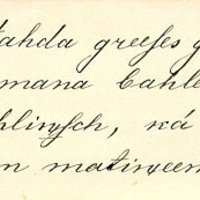 tahda greeſes g
mana bahle
hliņſch, ká
n matiņeem